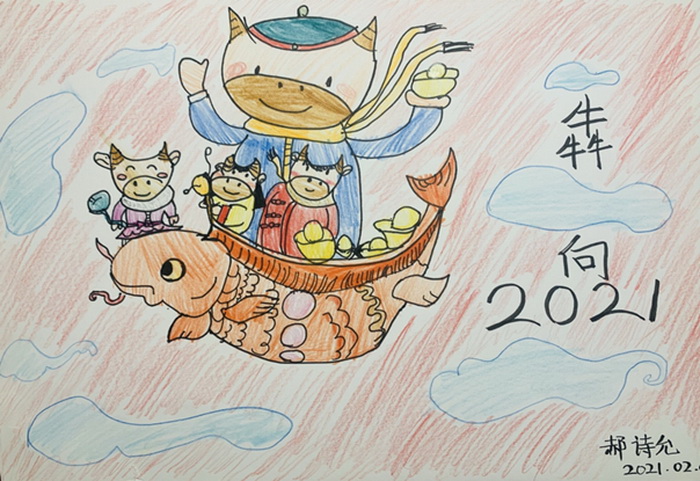 犇
向
2021
郝诗允
2021.02.